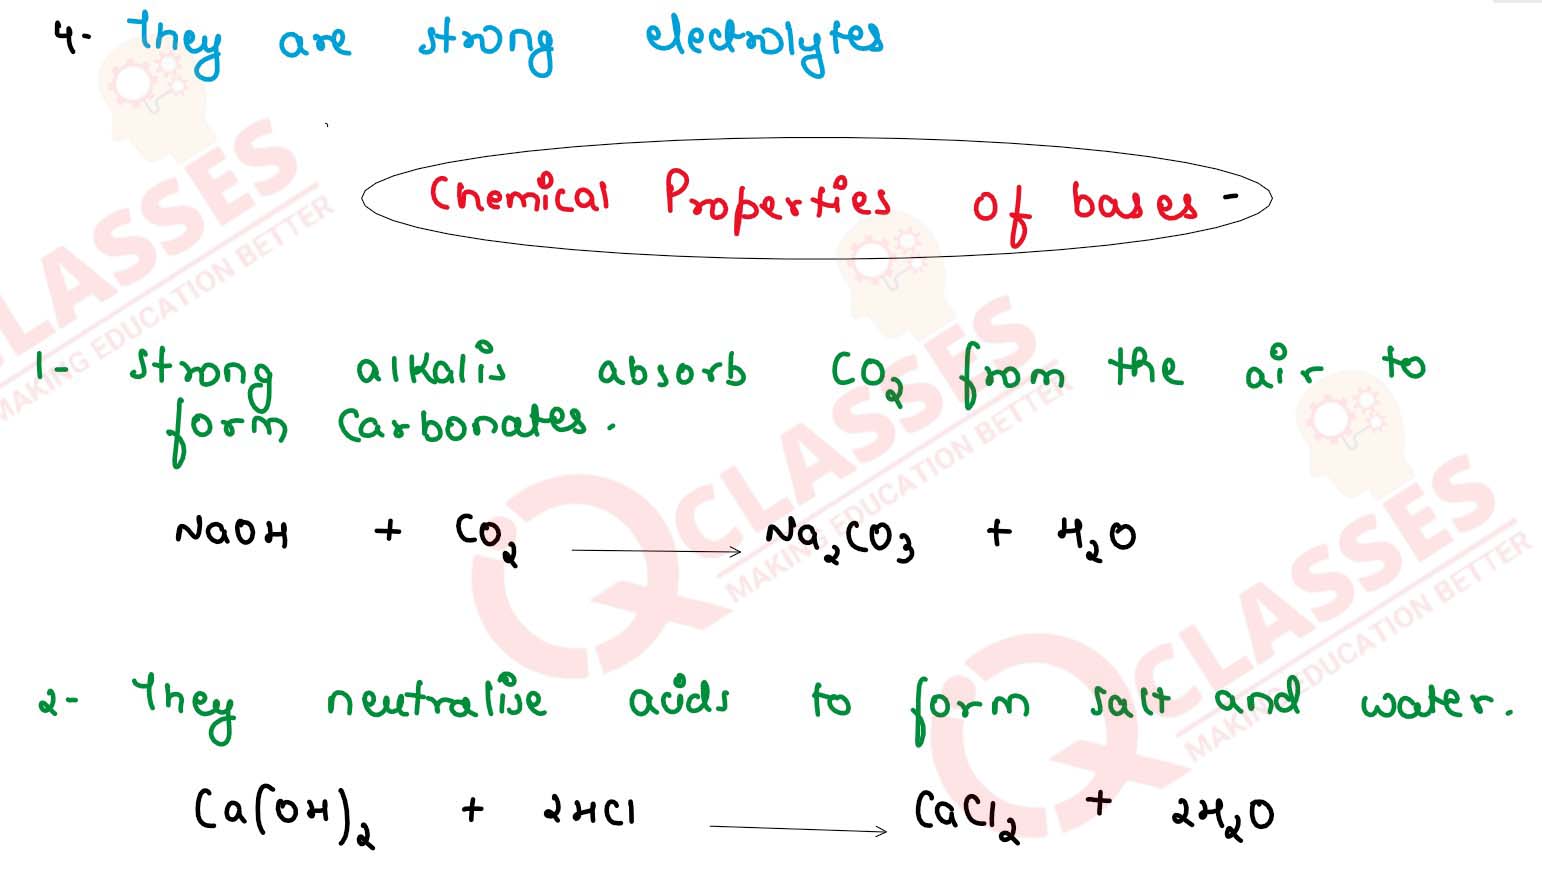 4- They are strong electrolytes
Chemical Properties of bases -
1- strong alkalis absorb CO₂ from the air to
form carbonates.
NaOH + CO₂ → Na₂CO₃ + H₂O
2- They neutralise acids to form salt and water.
Ca(OH)₂ + 2HCl → CaCl₂ + 2H₂O
CLASSES
MAKING EDUCATION BETTER
QCLASSES
MAKING EDUCATION BETTER
QCLASSES
MAKING EDUCATION BETTER